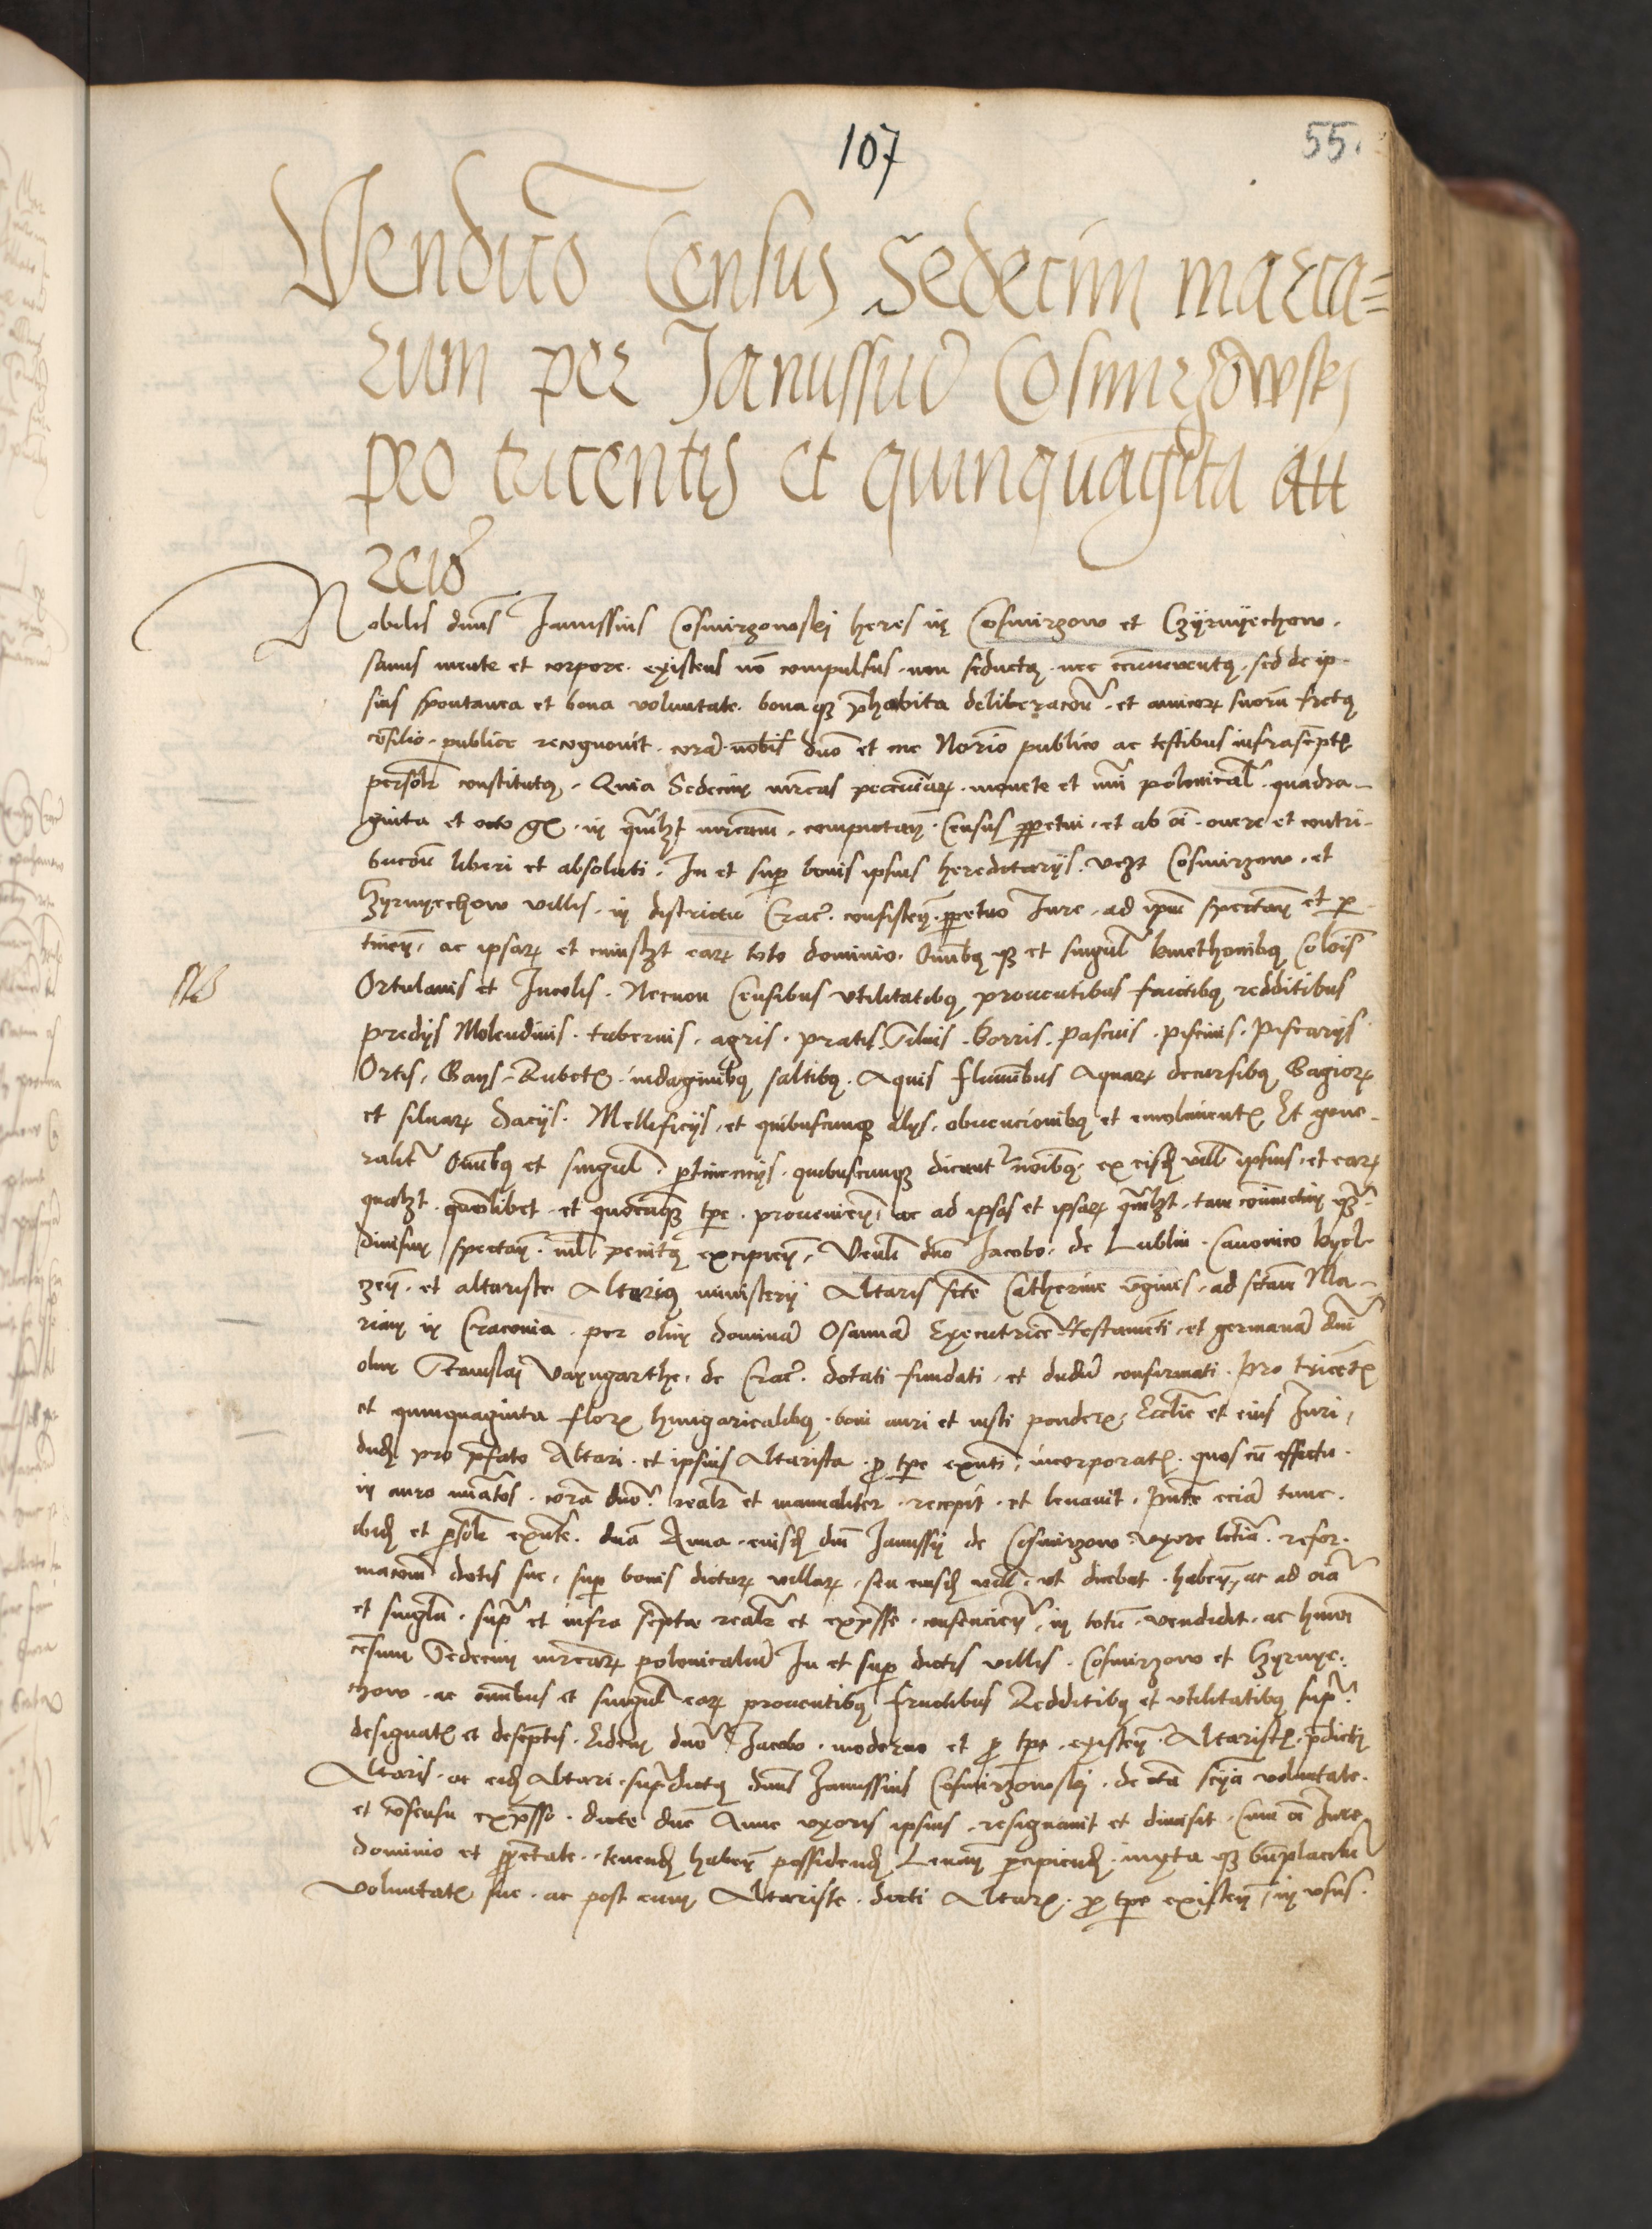 107
55.
Venditio Census Sedecim marca=
rum per Janussium Cosmirzowsky
pro tricentis et quinquaginta au
reis
Nobilis dnus Janussius Cosmirzowskj heres in Cosmirzow et Czyrnyechow.
sanus mente et corpore. existens no compulsus. non seductus. nec circumventus. sed de ip-
sius spontanea et bona voluntate. bonaque prehabita deliberacone. et amicorum suorum fretus
consilio. publice recognovit. coram dno et me Notario publico ac testibus infrascriptis
personaliter constitutus. Quia Sedecim marcas pecuniarum. monete et nui polonicalis. quadra-
ginta et octo gs. in quamlibet marcam. computan. Census perpetui. et ab oi. onere et contri-
bucone liberi et absoluti. In et super bonis ipsius hereditarijs. vczt Cosmirzow. et
Czyrnyechow villis. in districtu Crac. consisten. perpetuo Jure. ad ipm spectan et per-
tinen. ac ipsarum et cuiuslzt earum toto dominio. Omnibusque et singulis kmethonibus
Ortulanis et Incolis. Necnon Censibus vtilitatibus proventibus fructibus redditibus
predijs Molendinis. tabernis. agris. pratis. Silvis. borris. pascuis. piscinis. piscarijs
Ortis, Gays. Rubetis. indaginibus saltibus. Aquis fluminibus Aquarum decursibus Gagiorum
et silvarum Dacijs. Mellificijs. et quibuscunque alijs. obvencionibus et emolimentis Et gene-
ralit Omnibus et singulis. pertinencijs. quibuscunque dicant noibus. ex eisdem villis ipsius. et earum
qualzt. quomolibet. et quocunque tpe. provenien. ac ad ipsas et ipsarum quamlzt. tam coniunctim quam
divisim spectan. nihil penitus excipien. Venli dno Jacobo. de Lublin. Canonico kyel-
zen. et altariste Altaris ministerij Altaris scte Catherine virginis. ad sctam Ma-
riam in Cracovia. per olim dominam Osannam Executricem testamenti. et germanam dni
olim Stanislai Vayngarthe. de Crac. dotati fundati. et dudum confirmati. pro tricentis
et quinquaginta florenis hungaricalibus. boni auri et iusti ponderis. Ecclie et eius Juri,
dudum pro prefato Altari. et ipsius Altarista. pro tpe exnti. incorporatis. quos cum effectu.
in auro numeratos. coram dno. realiter et manualiter. recepit. et levavit. Pnte eciam tunc.
ibidem et personaliter exnte. dna Anna. eiusdem dni Janussij de Cosmirzow vxore ltima. refor-
macom dotis sue. super bonis dictarum villarum. seu eiusdem vill. vt dicebat. haben. ac ad oia
et singula. supra et infra scripta realiter et expresse. consencien. in totum. vendidit. ac hmoi
censum Sedecim marcarum polonicalium In et super dictis villis. Cosmirzow et Czyrnye-
chow. ac omnibus et singulis earum proventibus fructibus Redditibus et vtilitatibus supra
designatis et descriptis. Eidem dno Jacobo. moderno et pro tpe. existen. Altaristis. predicti
Altaris. ac eidem Altari. supradictus dnus Janussius Cosmirzowskj. de scitu voluntate.
et consensu expresso. dicte dne Anne vxoris ipsius. resignavit et dimisit. Cum oi Jure
dominio et proprietate. tenendum haben possidendum Levan percipiendum. iuxtaque beneplacitum
voluntatis sue. ac post eum Altariste. dicti Altaris. pro tpe existen. in vsus.